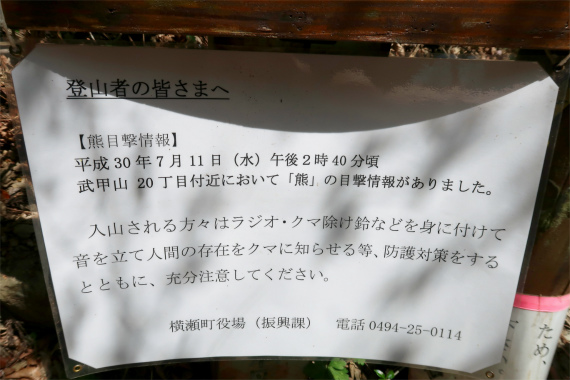 登山者の皆さまへ
【熊目撃情報】
平成30年7月11日（水）午後2時40分頃
武甲山 20丁目付近において「熊」の目撃情報がありました。
入山される方々はラジオ・クマ除け鈴などを身に付けて
音を立て人間の存在をクマに知らせる等、防護対策をする
とともに、充分注意してください。
横瀬町役場（振興課） 電話0494-25-0114
ため、